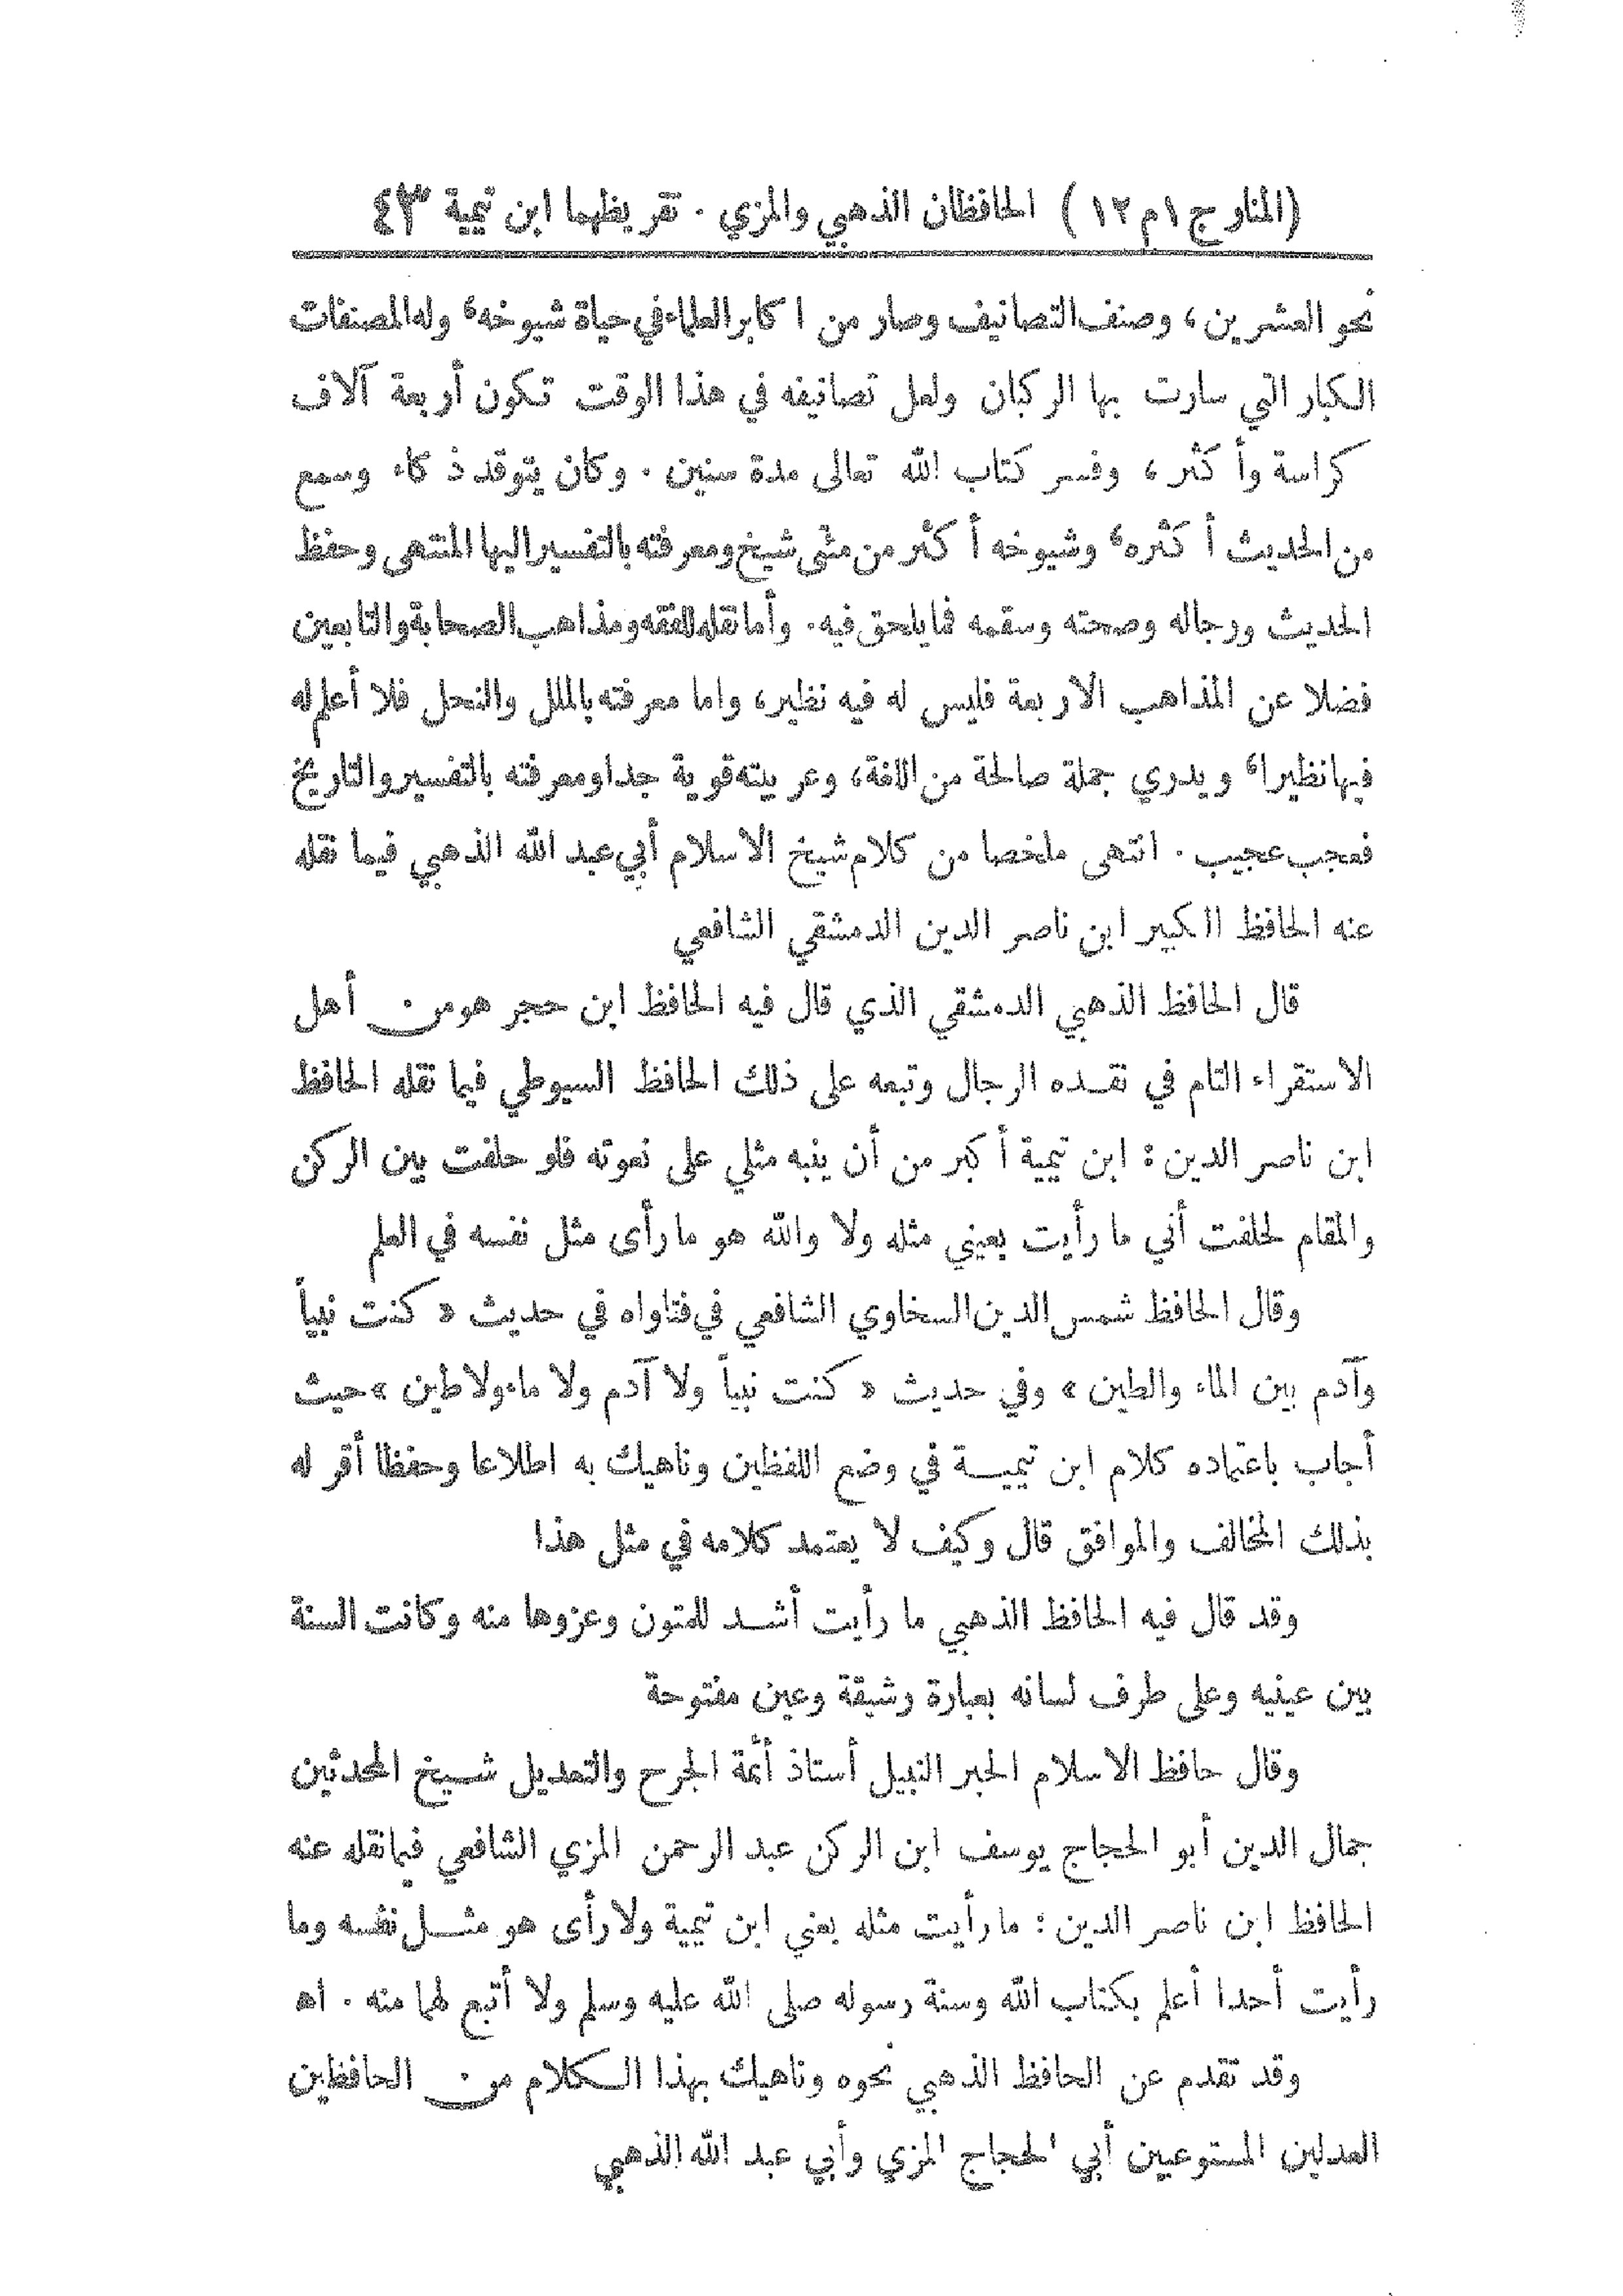 (المنار ج ١ م ١٢ ) الحافظان الذهبي والمزي . تقريظهما ابن تيمية ٤٣
نحو العشرين ، وصنف التصانيف وصار من اكابر العلماء في حياة شيوخه ، وله المصنفات
الكبار التي سارت بها الركبان ولعل تصانيفه في هذا الوقت تكون أربعة آلاف
كراسة وأكثر ، وفسر كتاب الله تعالى مدة سنين . وكان يتوقد ذكاء وسمع
من الحديث أكثره ، وشيوخه أكثر من مئتي شيخ ومعرفته بالتفسير اليها المنتهى وحفظ
الحديث ورجاله وصحته وسقمه فما يلحق فيه . وأما نقله للفقه ومذاهب الصحابة والتابعين
فضلا عن المذاهب الاربعة فليس له فيه نظير ، واما معرفته بالملل والنحل فلا أعلم له
فيها نظيرا ، ويدري جملة صالحة من اللغة ، وعربيته قوية جدا ومعرفته بالتفسير والتاريخ
فعجب عجيب . انتهى ملخصا من كلام شيخ الاسلام أبي عبد الله الذهبي فيما نقله
عنه الحافظ الكبير ابن ناصر الدين الدمشقي الشافعي
قال الحافظ الذهبي الدمشقي الذي قال فيه الحافظ ابن حجر هو من أهل
الاستقراء التام في نقده الرجال وتبعه على ذلك الحافظ السيوطي فيما نقله الحافظ
ابن ناصر الدين : ابن تيمية أكبر من أن ينبه مثلي على نعوته فلو حلفت بين الركن
والمقام لحلفت أني ما رأيت بعيني مثله ولا والله هو ما رأى مثل نفسه في العلم
وقال الحافظ شمس الدين السخاوي الشافعي في فتاواه في حديث « كنت نبياً
وآدم بين الماء والطين » وفي حديث « كنت نبياً ولا آدم ولا ماء ولا طين » حيث
أجاب باعتماده كلام ابن تيمية في وضع اللفظين وناهيك به اطلاعا وحفظا أقر له
بذلك المخالف والموافق قال وكيف لا يعتمد كلامه في مثل هذا
وقد قال فيه الحافظ الذهبي ما رأيت أشد للمتون وعزوها منه وكانت السنة
بين عينيه وعلى طرف لسانه بعبارة رشيقة وعين مفتوحة
وقال حافظ الاسلام الحبر النبيل أستاذ أئمة الجرح والتعديل شيخ المحدثين
جمال الدين أبو الحجاج يوسف ابن الركن عبد الرحمن المزي الشافعي فيما نقله عنه
الحافظ ابن ناصر الدين : ما رأيت مثله يعني ابن تيمية ولا رأى هو مثل نفسه وما
رأيت أحدا أعلم بكتاب الله وسنة رسوله صلى الله عليه وسلم ولا أتبع لهما منه . اه
وقد تقدم عن الحافظ الذهبي نحوه وناهيك بهذا الكلام من الحافظين
العدلين المستوعبين أبي الحجاج المزي وأبي عبد الله الذهبي